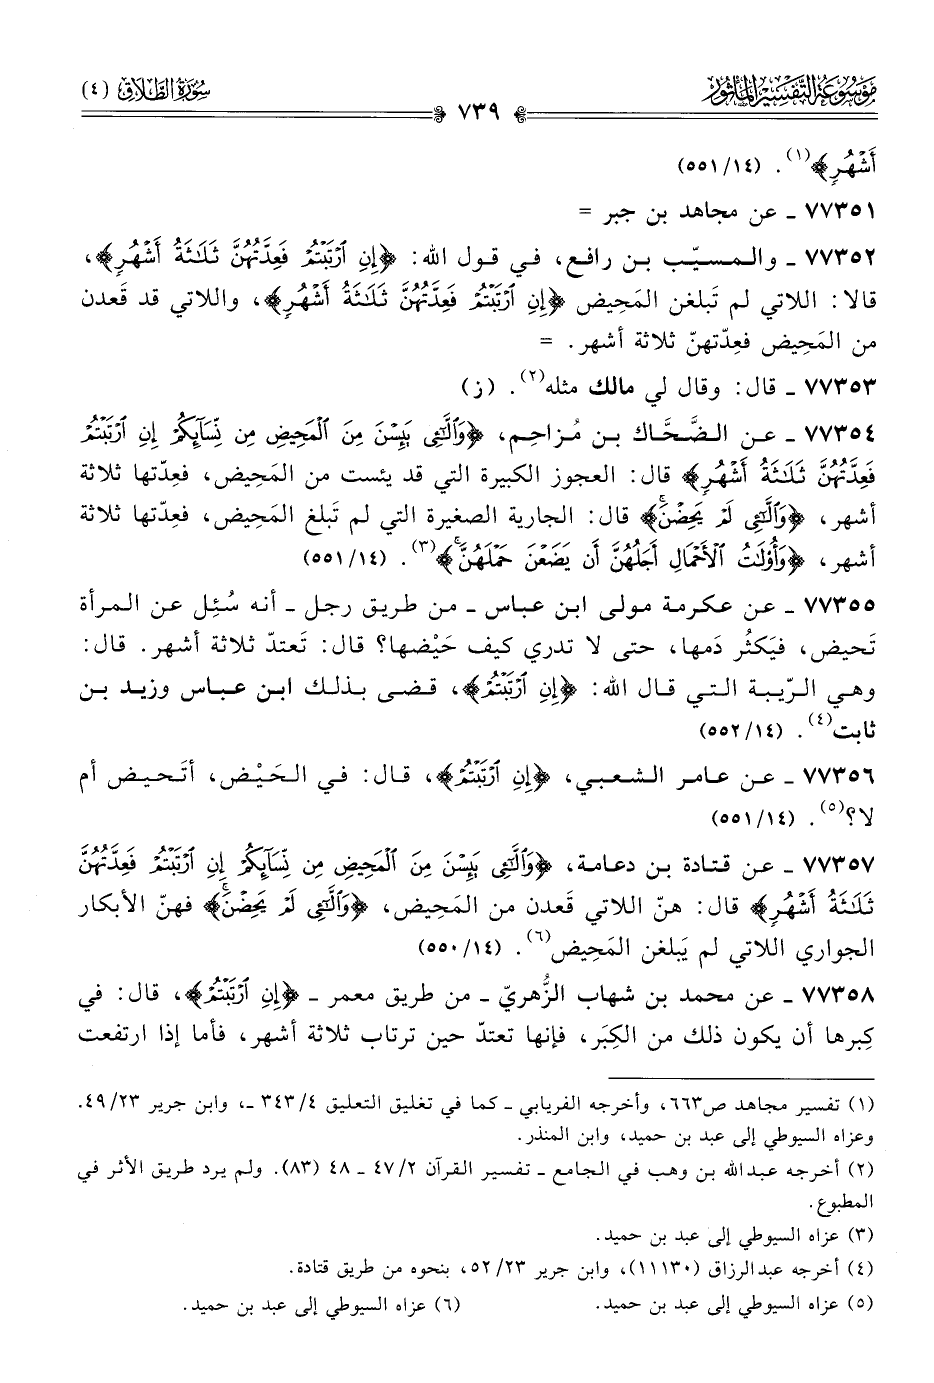 مَوْسُوعَة التَّفْسِير المَأثُور
سُورَةُ الطَّلَاق (٤)
٧٣٩
أَشْهُرٍ﴾(١). (١٤/ ٥٥١)
٧٧٣٥١ ـ عن مجاهد بن جبر =
٧٧٣٥٢ ـ والمسيّب بن رافع، في قول الله: ﴿إِنِ ٱرْتَبْتُمْ فَعِدَّتُهُنَّ ثَلَـٰثَةُ أَشْهُرٍ﴾،
قالا: اللاتي لم تَبلغن المَحِيض ﴿إِنِ ٱرْتَبْتُمْ فَعِدَّتُهُنَّ ثَلَـٰثَةُ أَشْهُرٍ﴾، واللاتي قد قَعدن
من المَحِيض فعِدّتهنّ ثلاثة أشهر. =
٧٧٣٥٣ ـ قال: وقال لي مالك مثله(٢). (ز)
٧٧٣٥٤ ـ عن الضَّحَّاك بن مُزاحِم، ﴿وَٱلَّـٰٓـِٔى يَئِسْنَ مِنَ ٱلْمَحِيضِ مِن نِّسَآئِكُمْ إِنِ ٱرْتَبْتُمْ
فَعِدَّتُهُنَّ ثَلَـٰثَةُ أَشْهُرٍ﴾ قال: العجوز الكبيرة التي قد يئست من المَحِيض، فعِدّتها ثلاثة
أشهر، ﴿وَٱلَّـٰٓـِٔى لَمْ يَحِضْنَ﴾ قال: الجارية الصغيرة التي لم تَبلغ المَحِيض، فعِدّتها ثلاثة
أشهر، ﴿وَأُو۟لَـٰتُ ٱلْأَحْمَالِ أَجَلُهُنَّ أَن يَضَعْنَ حَمْلَهُنَّ﴾(٣). (١٤/ ٥٥١)
٧٧٣٥٥ ـ عن عكرمة مولى ابن عباس ـ من طريق رجل ـ أنه سُئِل عن المرأة
تَحيض، فيَكثُر دَمها، حتى لا تدري كيف حَيْضها؟ قال: تَعتدّ ثلاثة أشهر. قال:
وهي الرّيبة التي قال الله: ﴿إِنِ ٱرْتَبْتُمْ﴾، قضى بذلك ابن عباس وزيد بن
ثابت(٤). (١٤/ ٥٥٢)
٧٧٣٥٦ ـ عن عامر الشعبي، ﴿إِنِ ٱرْتَبْتُمْ﴾، قال: في الحَيْض، أتَحيض أم
لا؟(٥). (١٤/ ٥٥١)
٧٧٣٥٧ ـ عن قتادة بن دعامة، ﴿وَٱلَّـٰٓـِٔى يَئِسْنَ مِنَ ٱلْمَحِيضِ مِن نِّسَآئِكُمْ إِنِ ٱرْتَبْتُمْ فَعِدَّتُهُنَّ
ثَلَـٰثَةُ أَشْهُرٍ﴾ قال: هنّ اللاتي قَعدن من المَحِيض، ﴿وَٱلَّـٰٓـِٔى لَمْ يَحِضْنَ﴾ فهنّ الأبكار
الجواري اللاتي لم يَبلغن المَحِيض(٦). (١٤/ ٥٥٠)
٧٧٣٥٨ ـ عن محمد بن شهاب الزُّهريّ ـ من طريق معمر ـ ﴿إِنِ ٱرْتَبْتُمْ﴾، قال: في
كِبرها أن يكون ذلك من الكِبَر، فإنها تعتدّ حين ترتاب ثلاثة أشهر، فأما إذا ارتفعت
(١) تفسير مجاهد ص٦٦٣، وأخرجه الفريابي ـ كما في تغليق التعليق ٤/ ٣٤٣ ـ، وابن جرير ٢٣/ ٤٩.
وعزاه السيوطي إلى عبد بن حميد، وابن المنذر.
(٢) أخرجه عبدالله بن وهب في الجامع ـ تفسير القرآن ٢/ ٤٧ ـ ٤٨ (٨٣). ولم يرد طريق الأثر في
المطبوع.
(٣) عزاه السيوطي إلى عبد بن حميد.
(٤) أخرجه عبدالرزاق (١١١٣٠)، وابن جرير ٢٣/ ٥٢، بنحوه من طريق قتادة.
(٥) عزاه السيوطي إلى عبد بن حميد. (٦) عزاه السيوطي إلى عبد بن حميد.